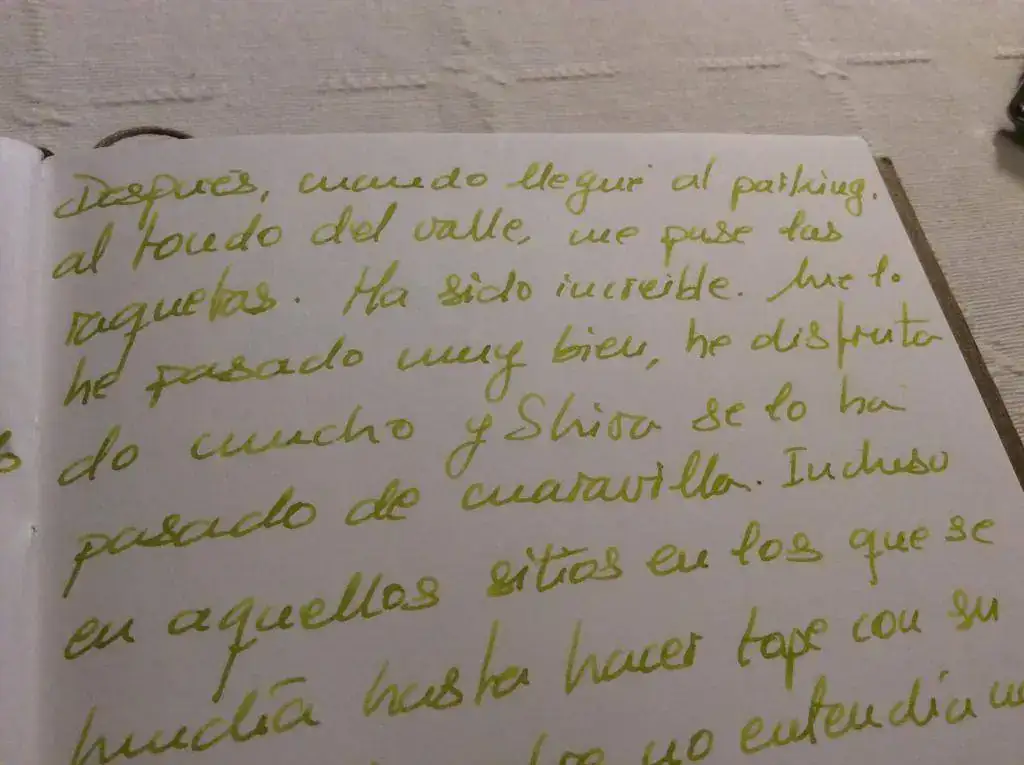 Después, cuando llegué al parking.
al fondo del valle, me puse las
raquetas. Ha sido increible. Me lo
he pasado muy bien, he disfruta
do mucho y Shira se lo ha
pasado de maravilla. Incluso
en aquellos sitios en los que se
hundía hasta hacer tope con su
no entendía